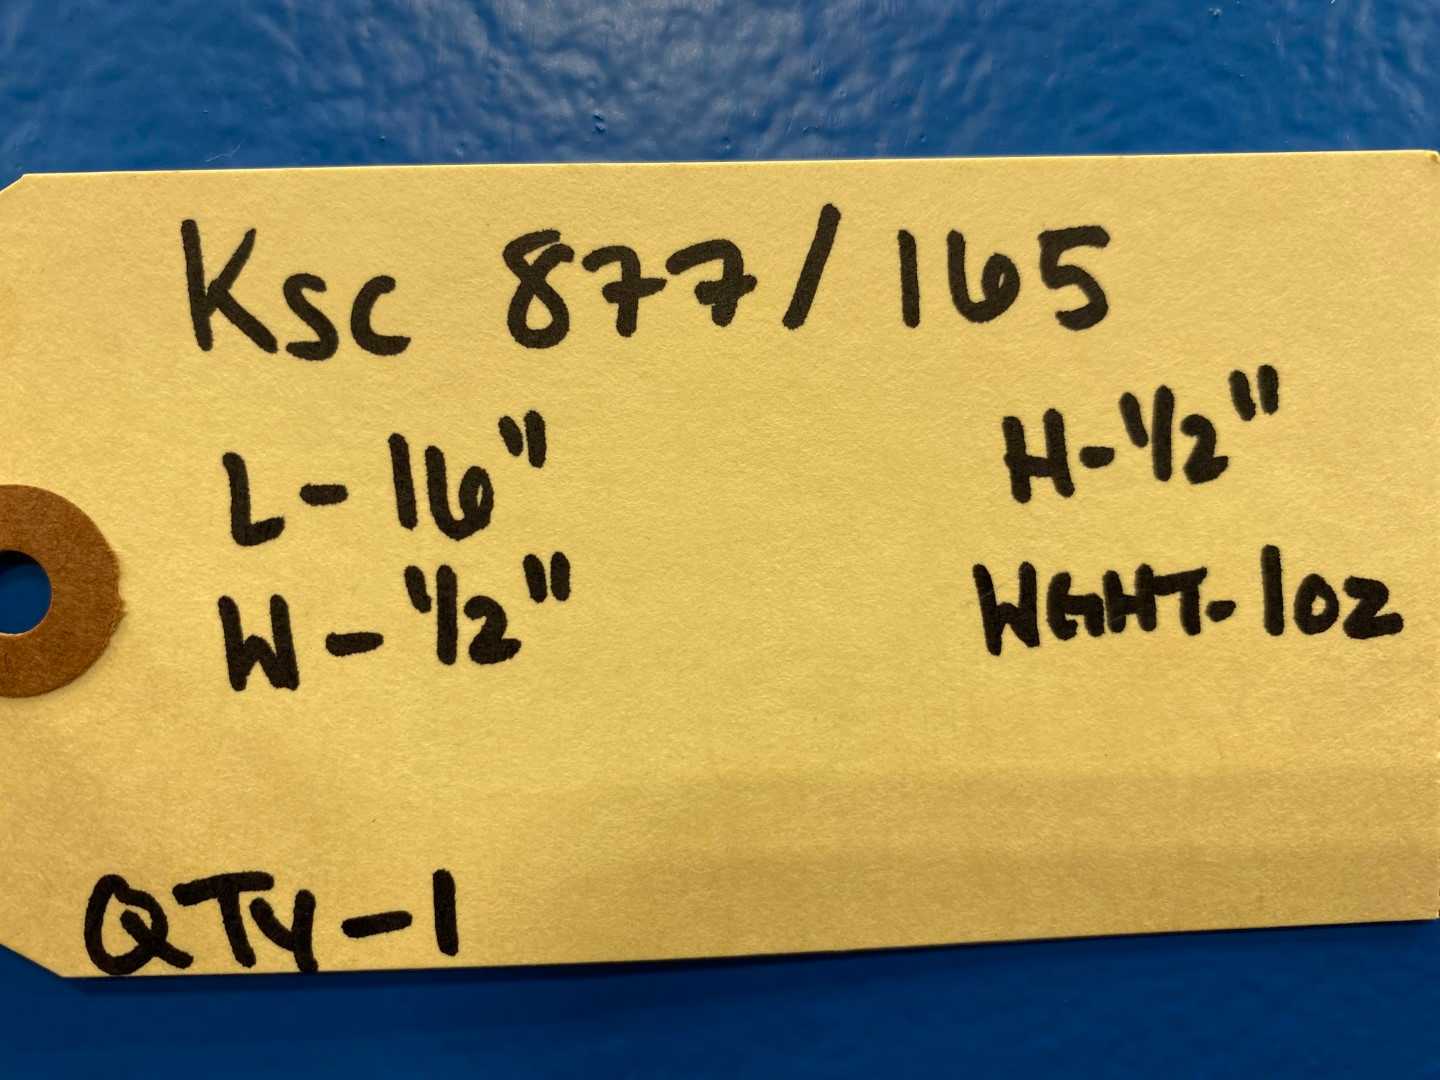 KSC 877/165
L-16" H-1/2"
W-1/2" WGHT-1oz
QTY-1